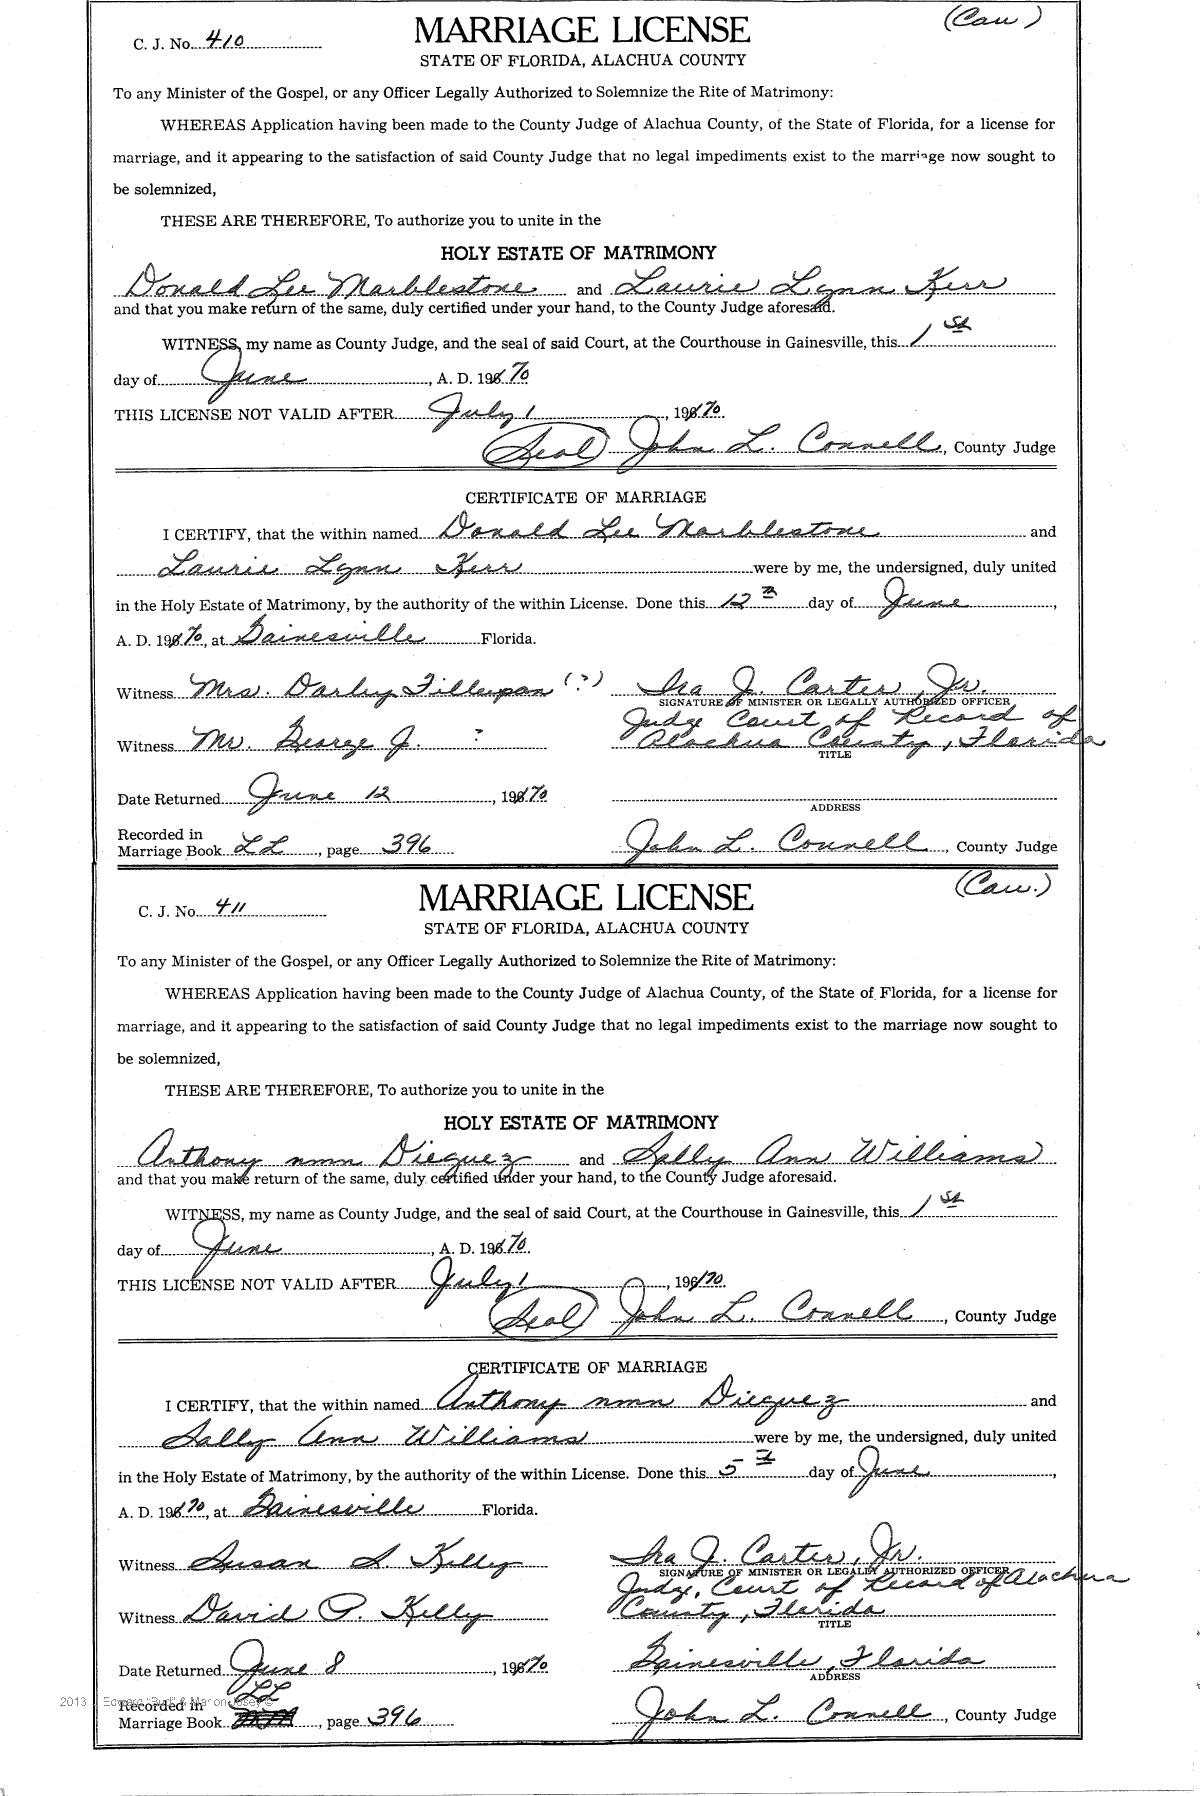 (Cau)
C. J. No. 410
MARRIAGE LICENSE
STATE OF FLORIDA, ALACHUA COUNTY
To any Minister of the Gospel, or any Officer Legally Authorized to Solemnize the Rite of Matrimony:
WHEREAS Application having been made to the County Judge of Alachua County, of the State of Florida, for a license for
marriage, and it appearing to the satisfaction of said County Judge that no legal impediments exist to the marriage now sought to
be solemnized,
THESE ARE THEREFORE, To authorize you to unite in the
HOLY ESTATE OF MATRIMONY
Donald Lee Marblestone and Laurie Lynn Kerr
and that you make return of the same, duly certified under your hand, to the County Judge aforesaid.
WITNESS, my name as County Judge, and the seal of said Court, at the Courthouse in Gainesville, this 1st
day of June, A. D. 1970
THIS LICENSE NOT VALID AFTER July 1, 1970
(Seal) John L. Connell, County Judge
CERTIFICATE OF MARRIAGE
I CERTIFY, that the within named Donald Lee Marblestone and
Laurie Lynn Kerr were by me, the undersigned, duly united
in the Holy Estate of Matrimony, by the authority of the within License. Done this 12th day of June,
A. D. 1970, at Gainesville Florida.
Witness Mrs. Darley (?) Ira J. Carter, Jr.
SIGNATURE OF MINISTER OR LEGALLY AUTHORIZED OFFICER
Judge Court of Record of
Witness Mr. George J. ? Alachua County, Florida
TITLE
Date Returned June 12, 1970
ADDRESS
Recorded in
Marriage Book LL, page 396 John L. Connell, County Judge
(Cau.)
C. J. No. 411
MARRIAGE LICENSE
STATE OF FLORIDA, ALACHUA COUNTY
To any Minister of the Gospel, or any Officer Legally Authorized to Solemnize the Rite of Matrimony:
WHEREAS Application having been made to the County Judge of Alachua County, of the State of Florida, for a license for
marriage, and it appearing to the satisfaction of said County Judge that no legal impediments exist to the marriage now sought to
be solemnized,
THESE ARE THEREFORE, To authorize you to unite in the
HOLY ESTATE OF MATRIMONY
Anthony nmn Dieguez and Sally Ann Williams
and that you make return of the same, duly certified under your hand, to the County Judge aforesaid.
WITNESS, my name as County Judge, and the seal of said Court, at the Courthouse in Gainesville, this 1st
day of June, A. D. 1970.
THIS LICENSE NOT VALID AFTER July 1, 1970
(Seal) John L. Connell, County Judge
CERTIFICATE OF MARRIAGE
I CERTIFY, that the within named Anthony nmn Dieguez and
Sally Ann Williams were by me, the undersigned, duly united
in the Holy Estate of Matrimony, by the authority of the within License. Done this 5th day of June,
A. D. 1970, at Gainesville Florida.
Witness Susan S Kelly Ira J. Carter, Jr.
SIGNATURE OF MINISTER OR LEGALLY AUTHORIZED OFFICER
Judge, Court of Record of Alachua
Witness David P. Kelly County, Florida
TITLE
Date Returned June 8, 1970 Gainesville, Florida
ADDRESS
2013
Recorded in LL
Marriage Book, page 396 John L. Connell, County Judge